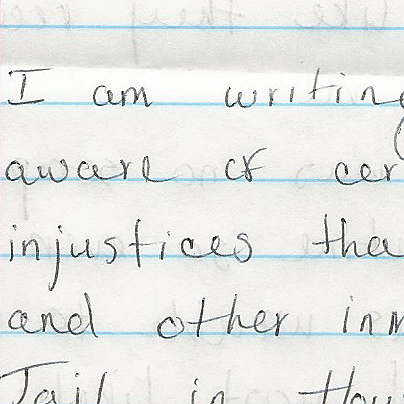 I am writin
aware of cer
injustices tha
and other inm
Jail in Hou